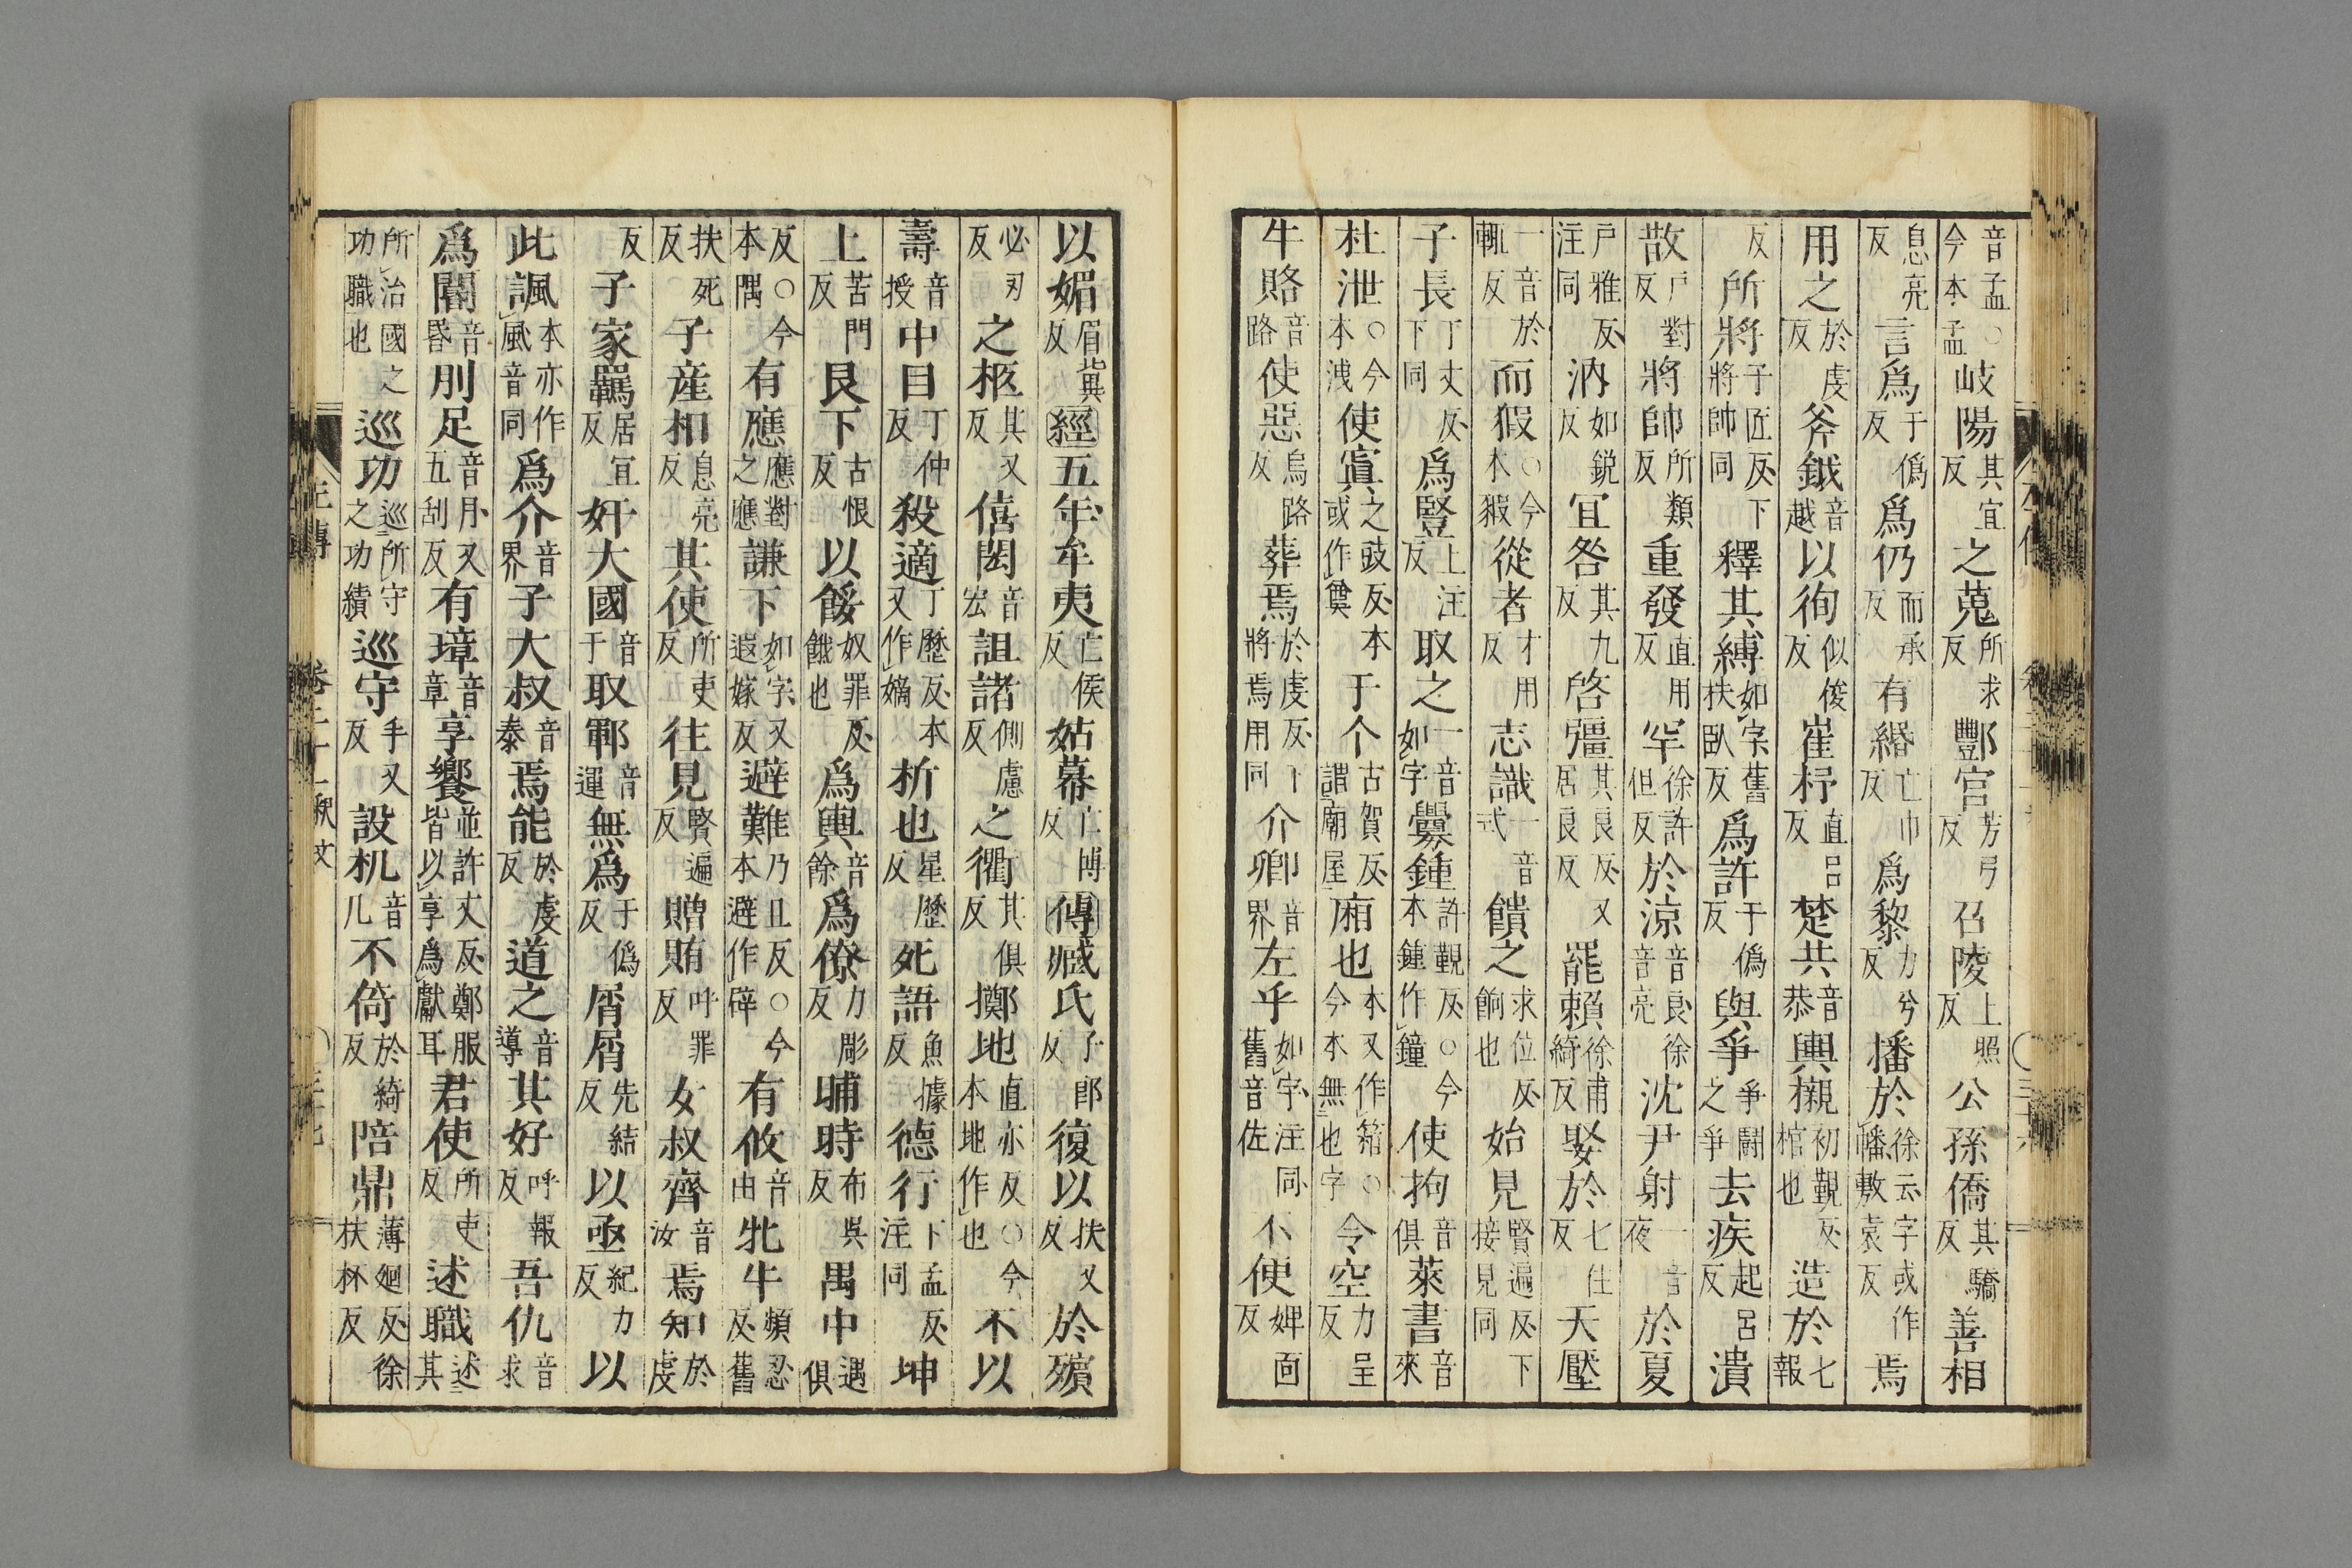 音孟○今本孟岐陽其宜反之蒐所求反酆宮芳弓反召陵上照反公孫僑其驕反善相
息亮反言爲于僞反爲仍而承反有緡亡巾反爲黎力兮反播於徐云字或作幡敷袁反焉
用之於虔反斧鉞音越以徇似俊反崔杼直呂反楚共音恭輿櫬初覲反棺也造於七報
反所將子匠反下將帥同釋其縛如字舊扶臥反爲許于僞反與爭爭鬬之爭去疾起呂反潰
散戶對反將帥所類反重發直用反罕徐許但反於涼音良徐音亮沈尹射一音夜於夏
戶雅反注同汭如銳反宜咎其九反啓彊其良反又居良反罷賴徐甫綺反娶於七住反天壓
一音於輒反而猳○今本豭從者才用反志識一音式饋之求位反餉也始見賢遍反下接見同
子長丁丈反下同爲豎上注反取之一音如字釁鍾許覲反○今本鍾作鐘使拘音俱萊書音來
杜泄○今本洩使寘之豉反本或作奠于个古賀反謂廟屋廂也本又作箱○今本無也字令空力呈反
牛賂音路使惡烏路反葬焉於虔反下將焉用同介卿音界左乎如字注同舊音佐不使婢面反
以媚眉冀反經五年牟夷亡侯反姑幕亡博反傳臧氏子郎反復以扶又反於殯
必刃反之柩其又反僖閎音宏詛諸側慮反之衢其俱反擲地直亦反○今本地作也不以
壽音授中目丁仲反殺適丁歷反本又作嫡析也星歷反死語魚據反德行下孟反注同坤
上苦門反艮下古恨反以餒奴罪反餓也爲輿音餘爲僚力彫反晡時布吳反禺中遇俱
反○今本隅有應應對之應謙下如字又遐嫁反避難乃旦反○今本避作辟有攸音由牝牛頻忍反舊
扶死反子產相息亮反其使所吏反往見賢遍反贈賄呼罪反女叔齊音汝焉知於虔
反子家羈居宜反奸大國音于取鄆音運無爲于僞反屑屑先結反以亟紀力反以
此諷本亦作風音同爲介音界子大叔音泰焉能於虔反道之音導其好呼報反吾仇音求
爲閽音昬刖足音月又五刮反有璋音章享饗並許丈反鄭服皆以享爲獻耳君使所吏反述職述其
所治國之功職也巡功巡所守之功績巡守手又反設机音几不倚於綺反陪鼎薄廻反徐扶杯反